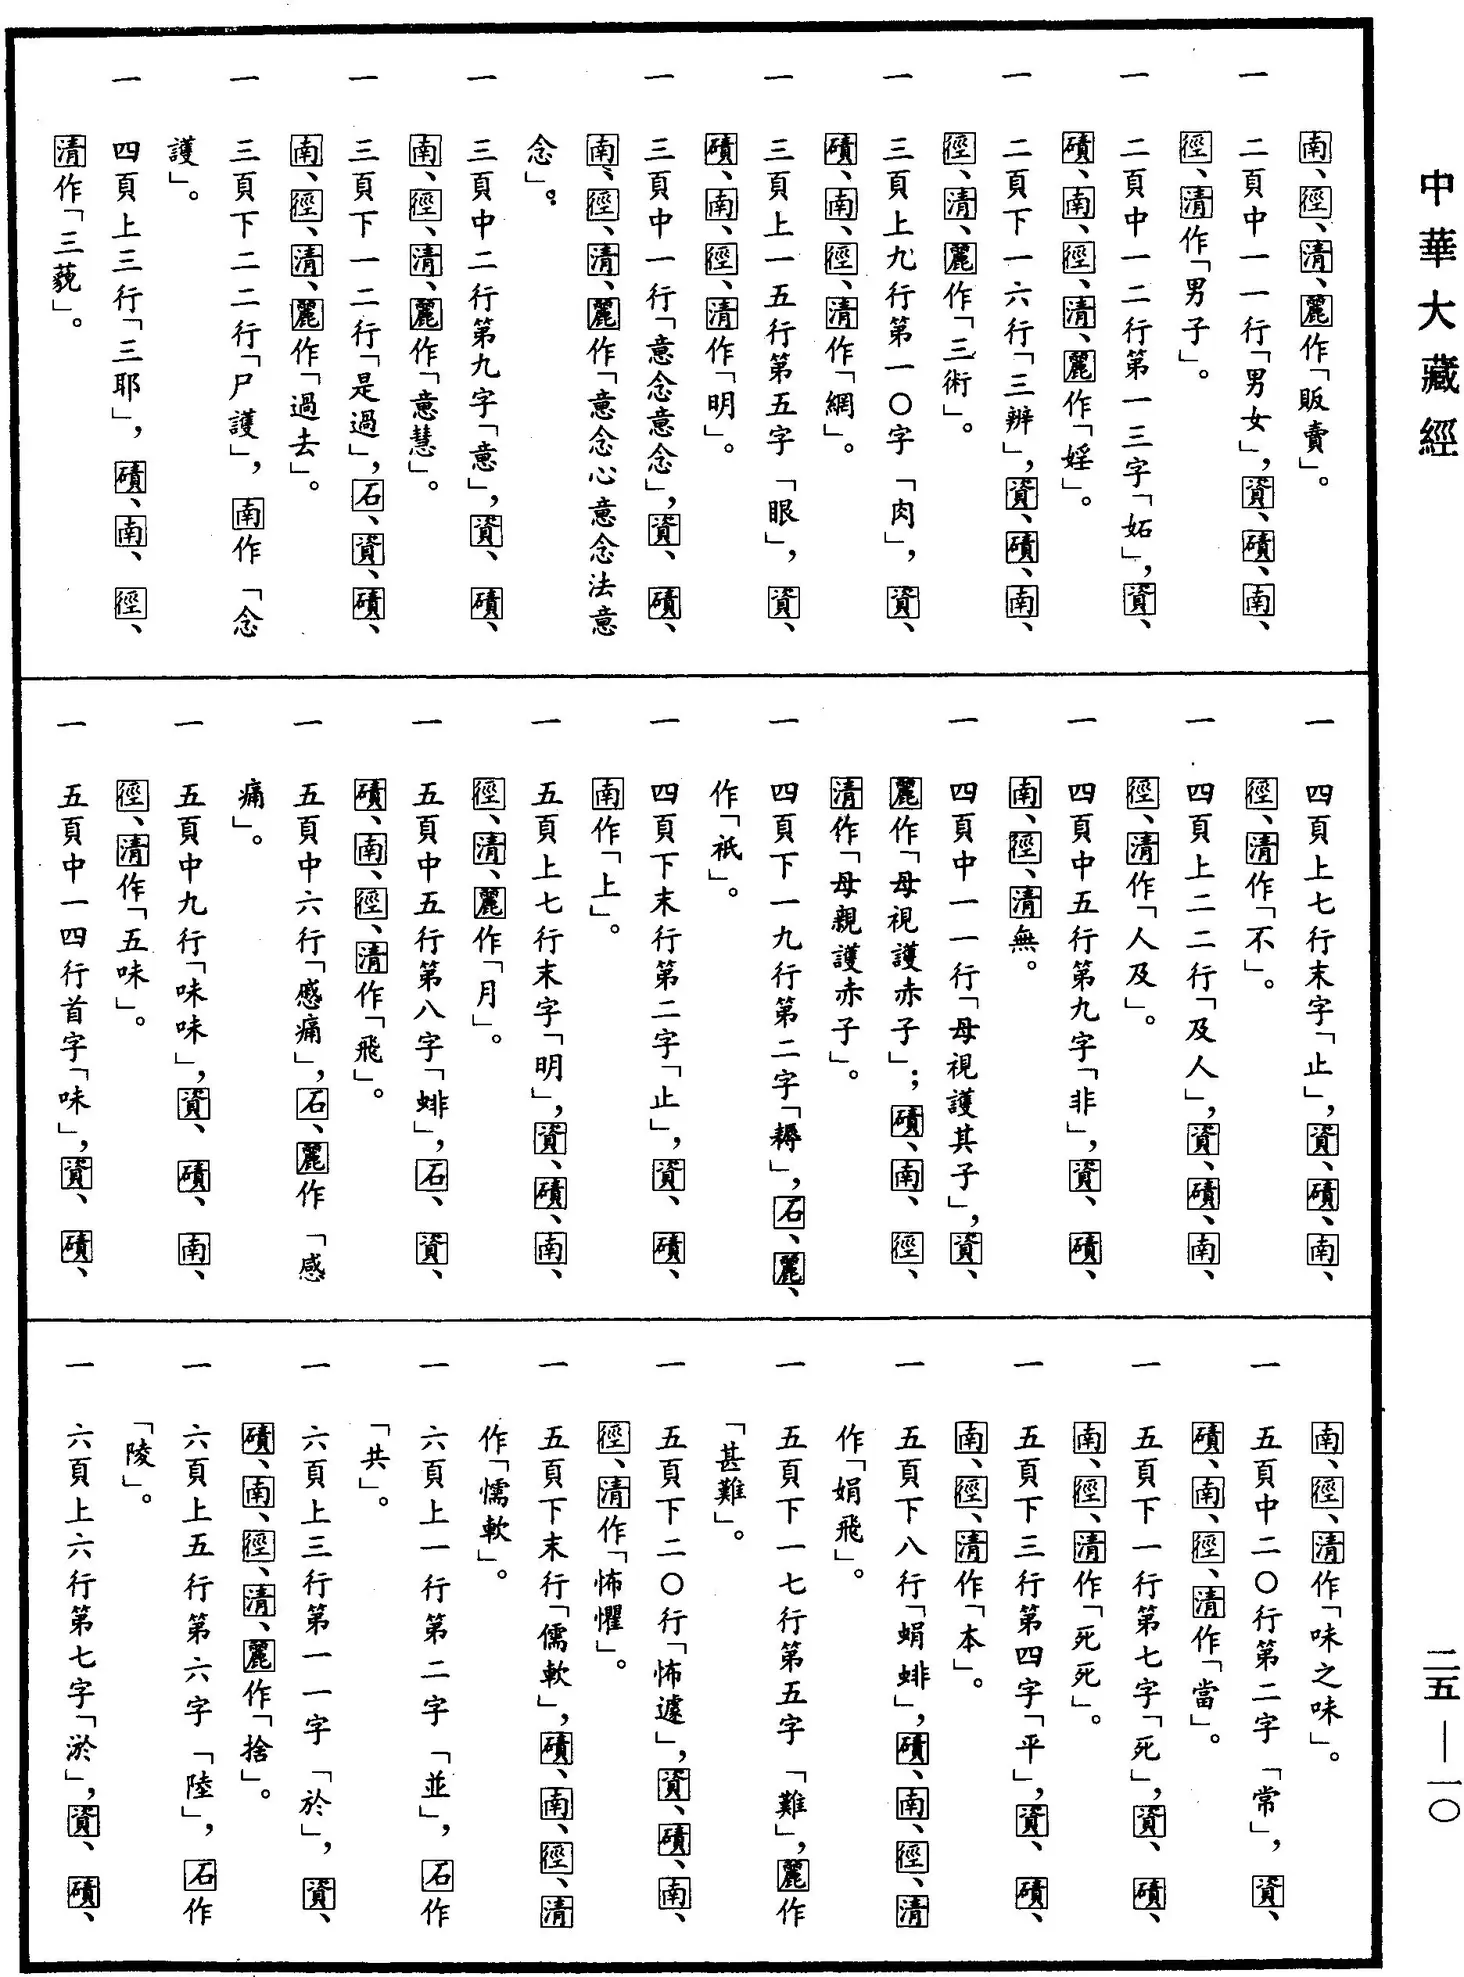 中華大藏經
南、徑、清、麗作「販賣」。
一 二頁中一一行「男女」，資、磧、南、
徑、清作「男子」。
一 二頁中一二行第一三字「妬」，資、
磧、南、徑、清、麗作「婬」。
一 二頁下一六行「三辨」，資、磧、南、
徑、清、麗作「三術」。
一 三頁上九行第一〇字「肉」，資、
磧、南、徑、清作「網」。
一 三頁上一五行第五字「眼」，資、
磧、南、徑、清作「明」。
一 三頁中一行「意念意念」，資、磧、
南、徑、清、麗作「意念心意念法意
念」。
一 三頁中二行第九字「意」，資、磧、
南、徑、清、麗作「意慧」。
一 三頁下一二行「是過」，石、資、磧、
南、徑、清、麗作「過去」。
一 三頁下二二行「尸護」，南作「念
護」。
一 四頁上三行「三耶」，磧、南、徑、
清作「三藐」。
一 四頁上七行末字「止」，資、磧、南、
徑、清作「不」。
一 四頁上二二行「及人」，資、磧、南、
徑、清作「人及」。
一 四頁中五行第九字「非」，資、磧、
南、徑、清無。
一 四頁中一一行「母視護其子」，資、
麗作「母視護赤子」；磧、南、徑、
清作「母親護赤子」。
一 四頁下一九行第二字「耨」，石、麗、
作「衹」。
一 四頁下末行第二字「止」，資、磧、
南作「上」。
一 五頁上七行末字「明」，資、磧、南、
徑、清、麗作「月」。
一 五頁中五行第八字「蜚」，石、資、
磧、南、徑、清作「飛」。
一 五頁中六行「慼痛」，石、麗作「感
痛」。
一 五頁中九行「味味」，資、磧、南、
徑、清作「五味」。
一 五頁中一四行首字「味」，資、磧、
南、徑、清作「味之味」。
一 五頁中二〇行第二字「常」，資、
磧、南、徑、清作「當」。
一 五頁下一行第七字「死」，資、磧、
南、徑、清作「死死」。
一 五頁下三行第四字「平」，資、磧、
南、徑、清作「本」。
一 五頁下八行「蜎蜚」，磧、南、徑、清
作「娟飛」。
一 五頁下一七行第五字「難」，麗作
「甚難」。
一 五頁下二〇行「怖遽」，資、磧、南、
徑、清作「怖懼」。
一 五頁下末行「儒軟」，磧、南、徑、清
作「懦軟」。
一 六頁上一行第二字「並」，石作
「共」。
一 六頁上三行第一一字「於」，資、
磧、南、徑、清、麗作「捨」。
一 六頁上五行第六字「陸」，石作
「陵」。
一 六頁上六行第七字「淤」，資、磧、
二五—一〇